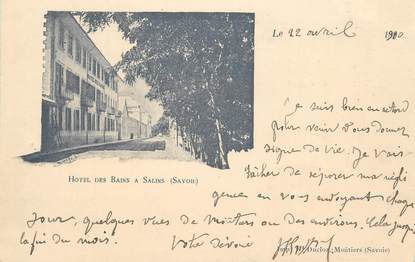 Le 22 avril 1900
Je suis bien en retard
pour venir vous donner
signe de vie. Je vais
tâcher de réparer ma négli
gence en vous envoyant chaque
jour, quelques vues de Moutiers ou des environs. Cela jusqu'à
la fin du mois.
Votre dévoué
HOTEL DES BAINS A SALINS (SAVOIE)
Ducloz, Moûtiers (Savoie)